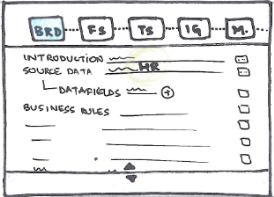 BRD FS TS IG M.
INTRODUCTION
SOURCE DATA HR
DATAFIELDS +
BUSINESS RULES